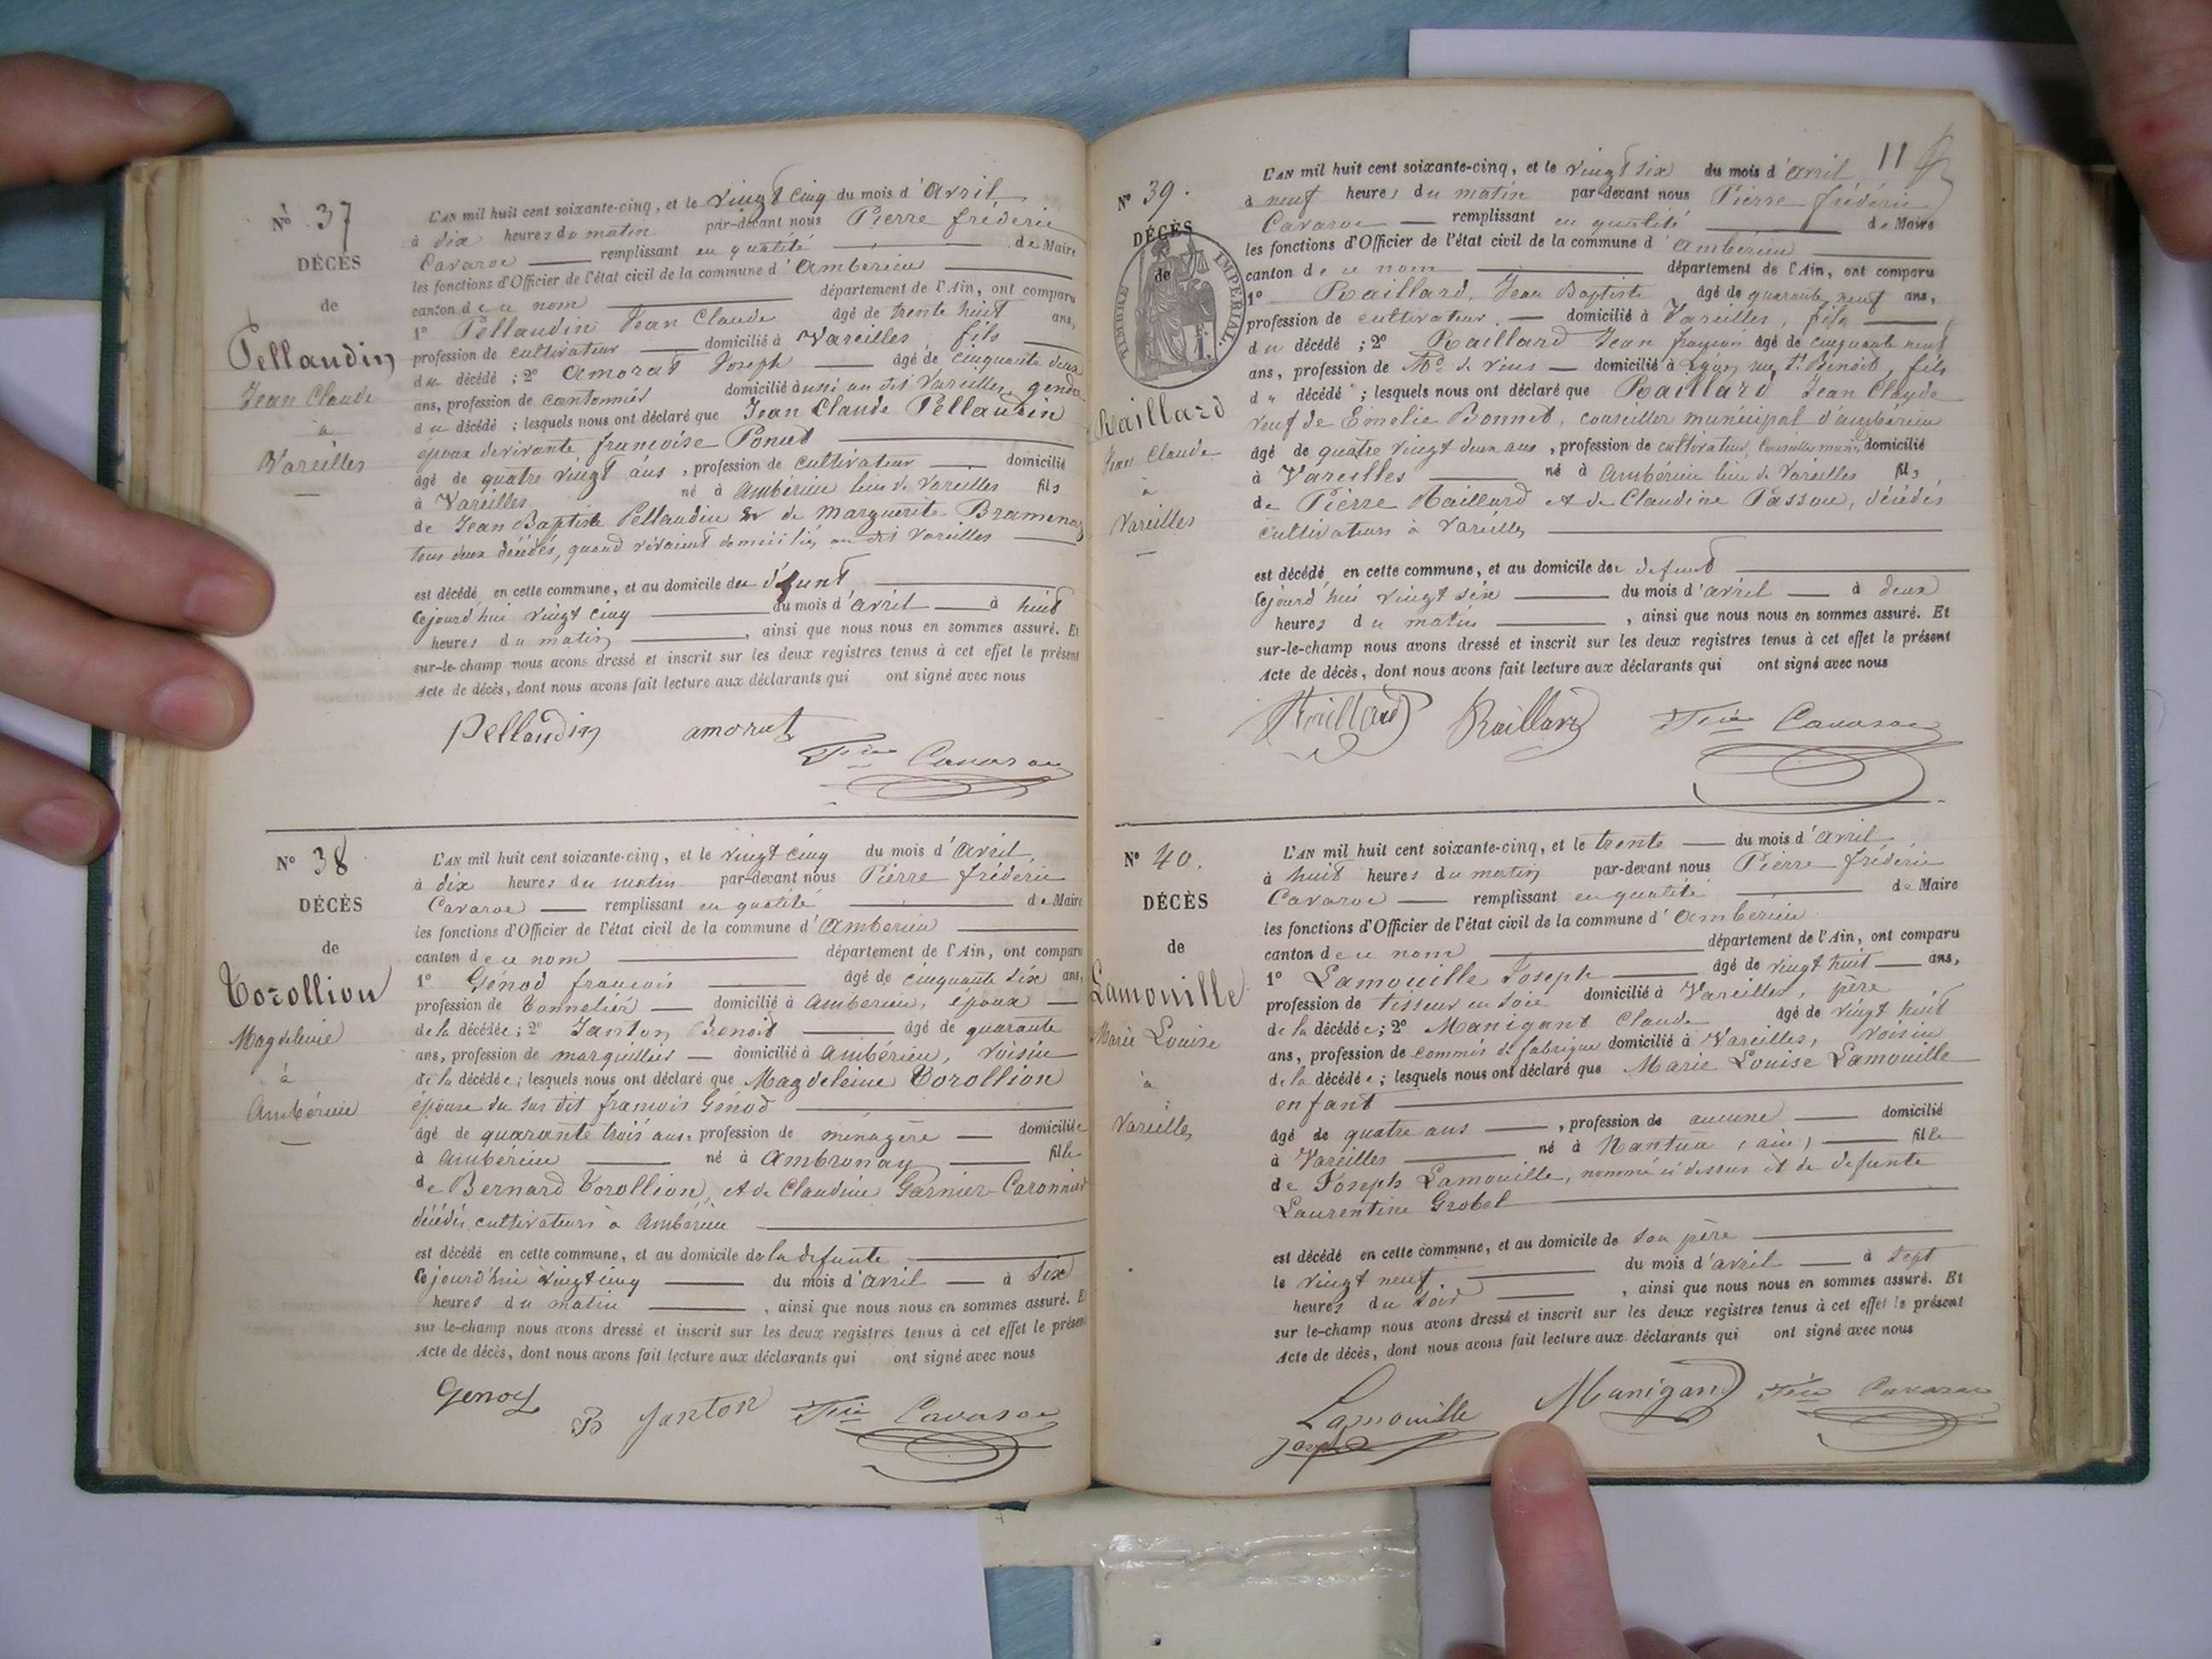 N° 37
DÉCÈS
de
Pellaudin
Jean Claude
à
Vareilles
L'AN mil huit cent soixante-cinq, et le vingt cinq du mois d'avril
à dix heures du matin par-devant nous Pierre frédéric
Cavaroc remplissant en qualité de Maire
les fonctions d'Officier de l'état civil de la commune d'Ambérieu
canton de ce nom département de l'Ain, ont comparu
1° Pellaudin Jean Claude âgé de trente huit ans,
profession de cultivateur domicilié à Vareilles, fils
du décédé ; 2° Amorat Joseph âgé de cinquante deux
ans, profession de cantonnier domicilié aussi au dit Vareilles, gendre
du décédé ; lesquels nous ont déclaré que Jean Claude Pellaudin
époux de vivante françoise Poncet
âgé de quatre vingt ans, profession de cultivateur domicilié
à Vareilles né à Ambérieu lieu de Vareilles fils
de Jean Baptiste Pellaudin & de Marguerite Bramenaz
tous deux décédés, quand vivaient domiciliés au dit Vareilles
est décédé en cette commune, et au domicile du défunt
cejourd'hui vingt cinq du mois d'avril à huit
heures du matin, ainsi que nous nous en sommes assuré. Et
sur-le-champ nous avons dressé et inscrit sur les deux registres tenus à cet effet le présent
Acte de décès, dont nous avons fait lecture aux déclarants qui ont signé avec nous
Pellaudin amorat Fric Cavaroc
N° 38
DÉCÈS
de
Torollion
Magdeleine
à
Ambérieu
L'AN mil huit cent soixante-cinq, et le vingt cinq du mois d'avril
à dix heures du matin par-devant nous Pierre frédéric
Cavaroc remplissant en qualité de Maire
les fonctions d'Officier de l'état civil de la commune d'Ambérieu
canton de ce nom département de l'Ain, ont comparu
1° Génod françois âgé de cinquante six ans,
profession de Tonnelier domicilié à Ambérieu, époux
de la décédée ; 2° Janton Benoit âgé de quarante
ans, profession de marguillier domicilié à Ambérieu, voisin
de la décédée ; lesquels nous ont déclaré que Magdeleine Torollion
épouse du sus dit françois Génod
âgé de quarante trois ans, profession de ménagère domiciliée
à Ambérieu né à Ambronay fille
de Bernard Torollion, et de Claudine Garnier Caronnier
décédés cultivateurs à Ambérieu
est décédé en cette commune, et au domicile de la défunte
cejourd'hui vingt cinq du mois d'avril à six
heures du matin, ainsi que nous nous en sommes assuré. Et
sur le-champ nous avons dressé et inscrit sur les deux registres tenus à cet effet le présent
Acte de décès, dont nous avons fait lecture aux déclarants qui ont signé avec nous
Genod B Janton Fric Cavaroc
11
N° 39.
DÉCÈS
de
TIMBRE IMPÉRIAL
1 F.
Raillard
Jean Claude
à
Vareilles
L'AN mil huit cent soixante-cinq, et le vingt six du mois d'avril
à neuf heures du matin par-devant nous Pierre frédéric
Cavaroc remplissant en qualité de Maire
les fonctions d'Officier de l'état civil de la commune d'Ambérieu
canton de ce nom département de l'Ain, ont comparu
1° Raillard, Jean Baptiste âgé de quarante neuf ans,
profession de cultivateur domicilié à Vareilles, fils
du décédé ; 2° Raillard Jean françois âgé de cinquante neuf
ans, profession de Md de vins domicilié à Lyon rue St Benoit, fils
du décédé ; lesquels nous ont déclaré que Raillard Jean Claude
veuf de Emelie Bonnet, conseiller municipal d'ambérieu
âgé de quatre vingt deux ans, profession de cultivateur, Conseiller munic. domicilié
à Vareilles né à Ambérieu lieu de Vareilles fils
de Pierre Raillard et de Claudine Passou, décédés
cultivateurs à Vareilles
est décédé en cette commune, et au domicile du défunt
cejourd'hui vingt six du mois d'avril à deux
heures du matin, ainsi que nous nous en sommes assuré. Et
sur-le-champ nous avons dressé et inscrit sur les deux registres tenus à cet effet le présent
Acte de décès, dont nous avons fait lecture aux déclarants qui ont signé avec nous
Raillard Raillard Fric Cavaroc
N° 40.
DÉCÈS
de
Lamouille
Marie Louise
à
Vareilles
L'AN mil huit cent soixante-cinq, et le trente du mois d'avril
à huit heures du matin par-devant nous Pierre frédéric
Cavaroc remplissant en qualité de Maire
les fonctions d'Officier de l'état civil de la commune d'Ambérieu
canton de ce nom département de l'Ain, ont comparu
1° Lamouille Joseph âgé de vingt huit ans,
profession de tisseur en soie domicilié à Vareilles, père
de la décédée ; 2° Manigant Claude âgé de vingt huit
ans, profession de commis de fabrique domicilié à Vareilles, voisin
de la décédée ; lesquels nous ont déclaré que Marie Louise Lamouille
enfant
âgé de quatre ans, profession de aucune domicilié
à Vareilles né à Nantua (ain) fille
de Joseph Lamouille, nommé ci dessus et de défunte
Laurentine Grobel
est décédé en cette commune, et au domicile de son père
le vingt neuf. du mois d'avril à sept
heures du soir, ainsi que nous nous en sommes assuré. Et
sur le-champ nous avons dressé et inscrit sur les deux registres tenus à cet effet le présent
Acte de décès, dont nous avons fait lecture aux déclarants qui ont signé avec nous
Lamouille Manigand Fric Cavaroc
Joseph